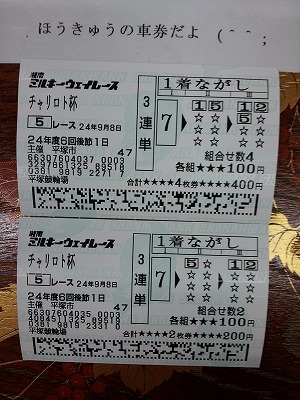 ほうきゅうの車券だよ (＾＾;
湘南
ミルキーウェイレース
チャリロト杯
5 レース 24年9月8日
24年度6回後節1日
主催 平塚市 47
平塚競輪場
3連単
1着ながし
7
1 5
☆ ☆
☆ ☆
☆ ☆
1 2
5 ☆
☆ ☆
☆ ☆
組合せ数4
各組★★★100円
合計★★★★4枚券★★★★400円
湘南
ミルキーウェイレース
チャリロト杯
5 レース 24年9月8日
24年度6回後節1日
主催 平塚市 47
平塚競輪場
3連単
1着ながし
7
5 ☆
☆ ☆
☆ ☆
☆ ☆
1 2
☆ ☆
☆ ☆
☆ ☆
組合せ数2
各組★★★100円
合計★★★★2枚券★★★★200円